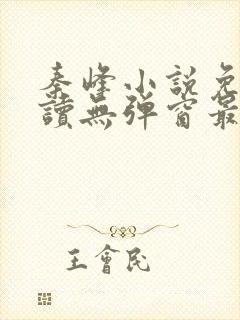 秦峰小説免
讀無彈窗最
王會民